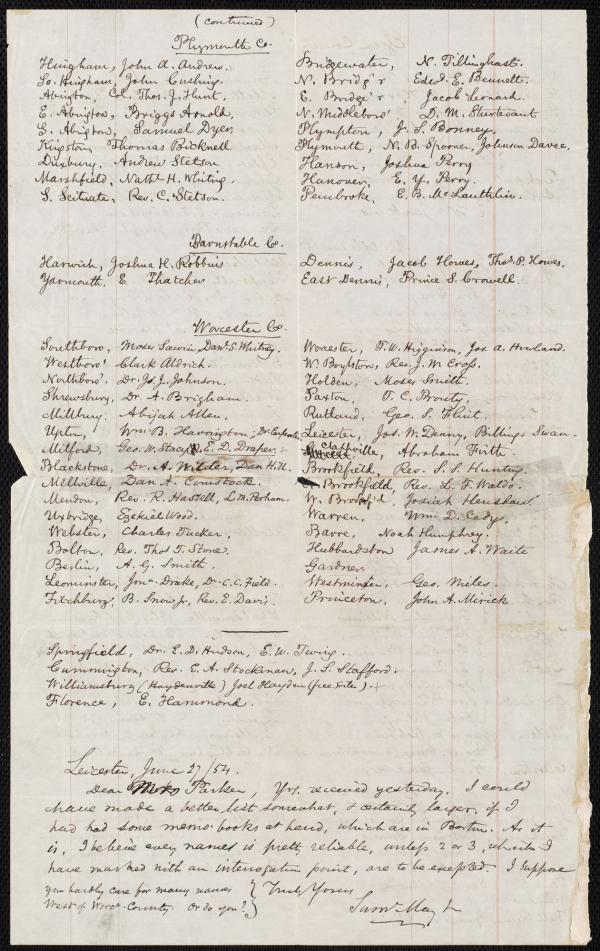 (continued)
Plymouth Co.
Hingham, John A. Andrew.
So. Hingham, John Cushing.
Abington, Col. Thos. J. Hunt.
E. Abington, Briggs Arnold,
S. Abington, Samuel Dyer,
Kingston, Thomas Bicknell
Duxbury, Andrew Stetson
Marshfield, Nathl. H. Whiting,
S. Scituate, Rev. C. Stetson.
Bridgewater, N. Tillinghast.
N. Bridg'r Edwd. E. Bennett.
E. Bridge'r, Jacob Leonard.
N. Middleboro' D. M. Sturtevant
Plympton, J. S. Bonney,
Plymouth, N. B. Spooner, Johnson Davee.
Hanson, Joshua Perry
Hanover, E. Y. Perry.
Pembroke, E. B. McLauthlin.
Barnstable Co.
Harwich, Joshua H. Robbins
Yarmouth. E. Thatcher
Dennis, Jacob Howes, Thos. P. Howes.
East Dennis, Prince S. Crowell.
Worcester Co.
Southboro, Moses Sawin, Danl. S. Whitney.
Westboro' Clark Aldrich.
Northboro', Dr. Js. J. Johnson.
Shrewsbury, Dr. A. Brigham.
Millbury. Abijah Allen.
Upton, Wm. B. Harrington; Dr. Carpenter
Milford, Geo. W. Stacy, E. D. Draper, +
Blackstone, Dr. A. Wilder, Dan Hill.
Millville, Dan A. Comstock.
Mendon, Rev. R. Hassell, L. M. Parham.
Uxbridge, Ezekiel Wood.
Webster, Charles Tucker,
Bolton, Rev. Thos. T. Stone.
Berlin, A. G. Smith.
Leominster, Jona. Drake, Dr. C. C. Field.
Fitchburg, B. Snow Jr, Rev. E. Davis.
Worcester, T. W. Higginson, Jos. A. Howland.
W. Boylston, Rev. J. W. Cross.
Holden, Moses Smith.
Paxton, P. C. Prouty,
Rutland, Geo. S. Flint.
Leicester, Jos. W. Denny, Billings Swan.
Clappville, Abraham Firth
Brookfield, Rev. S. S. Hunting
Brookfield, Rev. L. F. Waldo.
W. Brookf'd, Josiah Henshaw
Warren, Wm. D. Cady,
Barre, Noah Humphrey.
Hubbardston James A. Waite
Gardner
Westminster, Geo. Miles.
Princeton, John A. Mirick
Springfield, Dr. E. D. Hudson, E. W. Twing.
Cummington, Rev. E. A. Stockman, J. S. Stafford.
Williamsburg (Haydenville) Joel Hayden (free soiler). +
Florence, E. Hammond.
Leicester, June 27/54.
Dear Mr Parker, Yrs. received yesterday. I could
have made a better list somewhat, & certainly larger, if I
had had some memo. books at hand, which are in Boston. As it
is, I believe every names is pretty reliable, unless 2 or 3, which I
have marked with an interrogation point, are to be excepted. I suppose
you hardly care for many names
West of Worcr. County. Or do you?
Truly Yours
Saml. May Jr